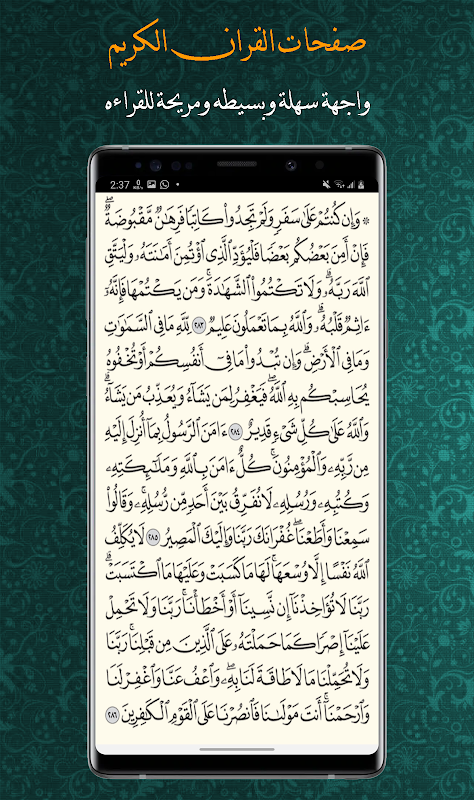 صفحات القران الكريم
واجهة سهلة وبسيطه ومريحة للقراءه
2:37
۞ وَإِن كُنتُمْ عَلَىٰ سَفَرٍ وَلَمْ تَجِدُوا۟ كَاتِبًا فَرِهَٰنٌ مَّقْبُوضَةٌ ۖ
فَإِنْ أَمِنَ بَعْضُكُم بَعْضًا فَلْيُؤَدِّ ٱلَّذِى ٱؤْتُمِنَ أَمَٰنَتَهُۥ وَلْيَتَّقِ
ٱللَّهَ رَبَّهُۥ ۗ وَلَا تَكْتُمُوا۟ ٱلشَّهَٰدَةَ ۚ وَمَن يَكْتُمْهَا فَإِنَّهُۥٓ
ءَاثِمٌ قَلْبُهُۥ ۗ وَٱللَّهُ بِمَا تَعْمَلُونَ عَلِيمٌ ٢٨٣ لِّلَّهِ مَا فِى ٱلسَّمَٰوَٰتِ
وَمَا فِى ٱلْأَرْضِ ۗ وَإِن تُبْدُوا۟ مَا فِىٓ أَنفُسِكُمْ أَوْ تُخْفُوهُ
يُحَاسِبْكُم بِهِ ٱللَّهُ ۖ فَيَغْفِرُ لِمَن يَشَآءُ وَيُعَذِّبُ مَن يَشَآءُ ۗ
وَٱللَّهُ عَلَىٰ كُلِّ شَىْءٍ قَدِيرٌ ٢٨٤ ءَامَنَ ٱلرَّسُولُ بِمَآ أُنزِلَ إِلَيْهِ
مِن رَّبِّهِۦ وَٱلْمُؤْمِنُونَ ۚ كُلٌّ ءَامَنَ بِٱللَّهِ وَمَلَٰٓئِكَتِهِۦ
وَكُتُبِهِۦ وَرُسُلِهِۦ لَا نُفَرِّقُ بَيْنَ أَحَدٍ مِّن رُّسُلِهِۦ ۚ وَقَالُوا۟
سَمِعْنَا وَأَطَعْنَا ۖ غُفْرَانَكَ رَبَّنَا وَإِلَيْكَ ٱلْمَصِيرُ ٢٨٥ لَا يُكَلِّفُ
ٱللَّهُ نَفْسًا إِلَّا وُسْعَهَا ۚ لَهَا مَا كَسَبَتْ وَعَلَيْهَا مَا ٱكْتَسَبَتْ ۗ
رَبَّنَا لَا تُؤَاخِذْنَآ إِن نَّسِينَآ أَوْ أَخْطَأْنَا ۚ رَبَّنَا وَلَا تَحْمِلْ
عَلَيْنَآ إِصْرًا كَمَا حَمَلْتَهُۥ عَلَى ٱلَّذِينَ مِن قَبْلِنَا ۚ رَبَّنَا
وَلَا تُحَمِّلْنَا مَا لَا طَاقَةَ لَنَا بِهِۦ ۖ وَٱعْفُ عَنَّا وَٱغْفِرْ لَنَا
وَٱرْحَمْنَآ ۚ أَنتَ مَوْلَىٰنَا فَٱنصُرْنَا عَلَى ٱلْقَوْمِ ٱلْكَٰفِرِينَ ٢٨٦